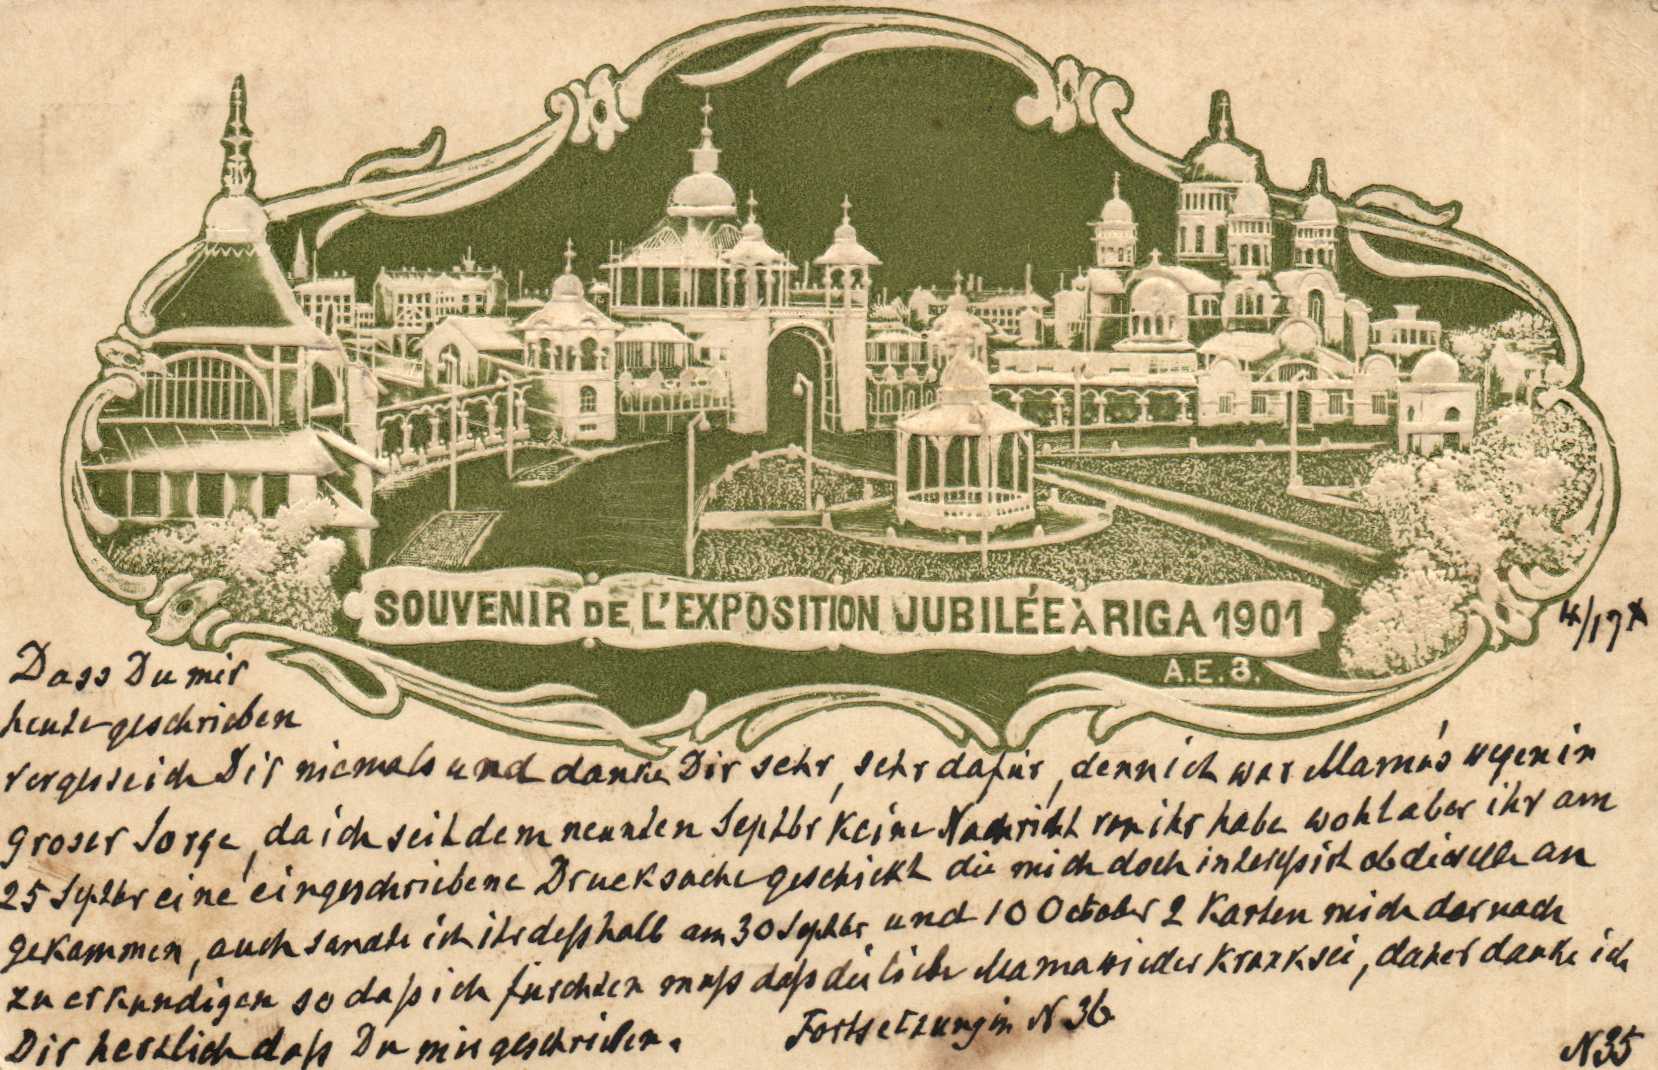 SOUVENIR DE L'EXPOSITION JUBILÉE À RIGA 1901
A.E.З.
4/17 X
Dass Du mir
heute geschrieben
vergesse ich Dir niemals und danke Dir sehr, sehr dafür, denn ich war Mama's wegen in
groser Sorge, da ich seit dem neunten Septbr keine Nachricht von ihr habe wohl aber ihr am
25 Septbr eine eingeschriebene Drucksache geschickt die mich doch interessirt ob dieselbe an
gekommen, auch sandte ich ihr deßhalb am 30 Septbr und 10 October 2 Karten mich darnach
zu erkundigen so daß ich fürchten muß daß die liebe Mama wieder krank sei, daher danke ich
Dir herzlich daß Du mir geschrieben.
Fortsetzung in N 36
N 35